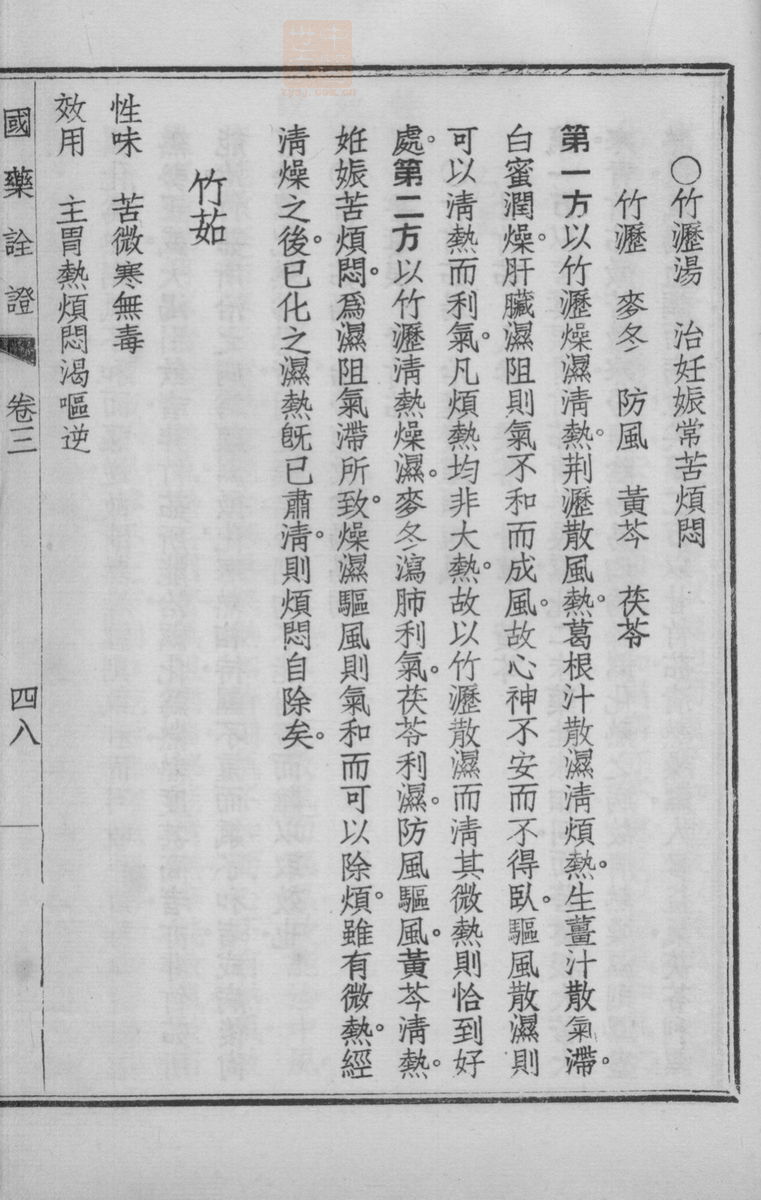 〇竹瀝湯　治妊娠常苦煩悶
竹瀝　麥冬　防風　黃芩　茯苓
第一方以竹瀝燥濕清熱。荆瀝散風熱。葛根汁散濕清煩熱。生薑汁散氣滯。
白蜜潤燥。肝臟濕阻則氣不和而成風。故心神不安而不得臥。驅風散濕則
可以清熱而利氣。凡煩熱均非大熱。故以竹瀝散濕而清其微熱則恰到好
處。第二方以竹瀝清熱燥濕。麥冬瀉肺利氣。茯苓利濕。防風驅風。黃芩清熱。
妊娠苦煩悶。爲濕阻氣滯所致。燥濕驅風則氣和而可以除煩。雖有微熱。經
清燥之後。已化之濕熱旣已肅清。則煩悶自除矣。
竹茹
性味　苦微寒無毒
效用　主胃熱煩悶渴嘔逆
國藥詮證　卷三　四八
zysj.com.cn